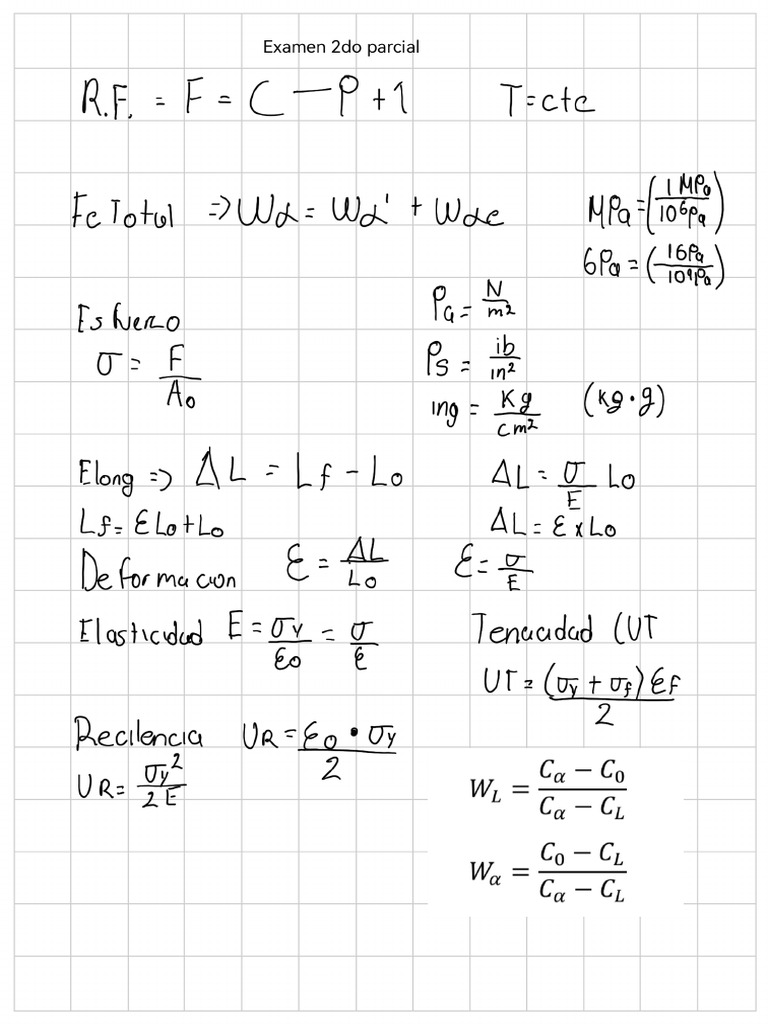 Examen 2do parcial
R.F. = F = C - P + 1 T = cte
Fe Total => Wα = Wα' + Wαe
MPa = (1 MPa / 10⁶Pa)
GPa = (1GPa / 10⁹Pa)
Esfuerzo
σ = F / A₀
Pa = N / m²
Ps = ib / in²
ing = Kg / cm² (kg · g)
Elong => ΔL = Lf - L₀ ΔL = σ / E L₀
Lf = εL₀ + L₀ ΔL = ε x L₀
Deformacion ε = ΔL / L₀ ε = σ / E
Elasticidad E = σy / ε₀ = σ / ε
Tenacidad (UT
UT = (σy + σf) εf / 2
Recilencia UR = ε₀ · σy / 2
UR = σy² / 2E
W_L = (C_α − C_0) / (C_α − C_L)
W_α = (C_0 − C_L) / (C_α − C_L)